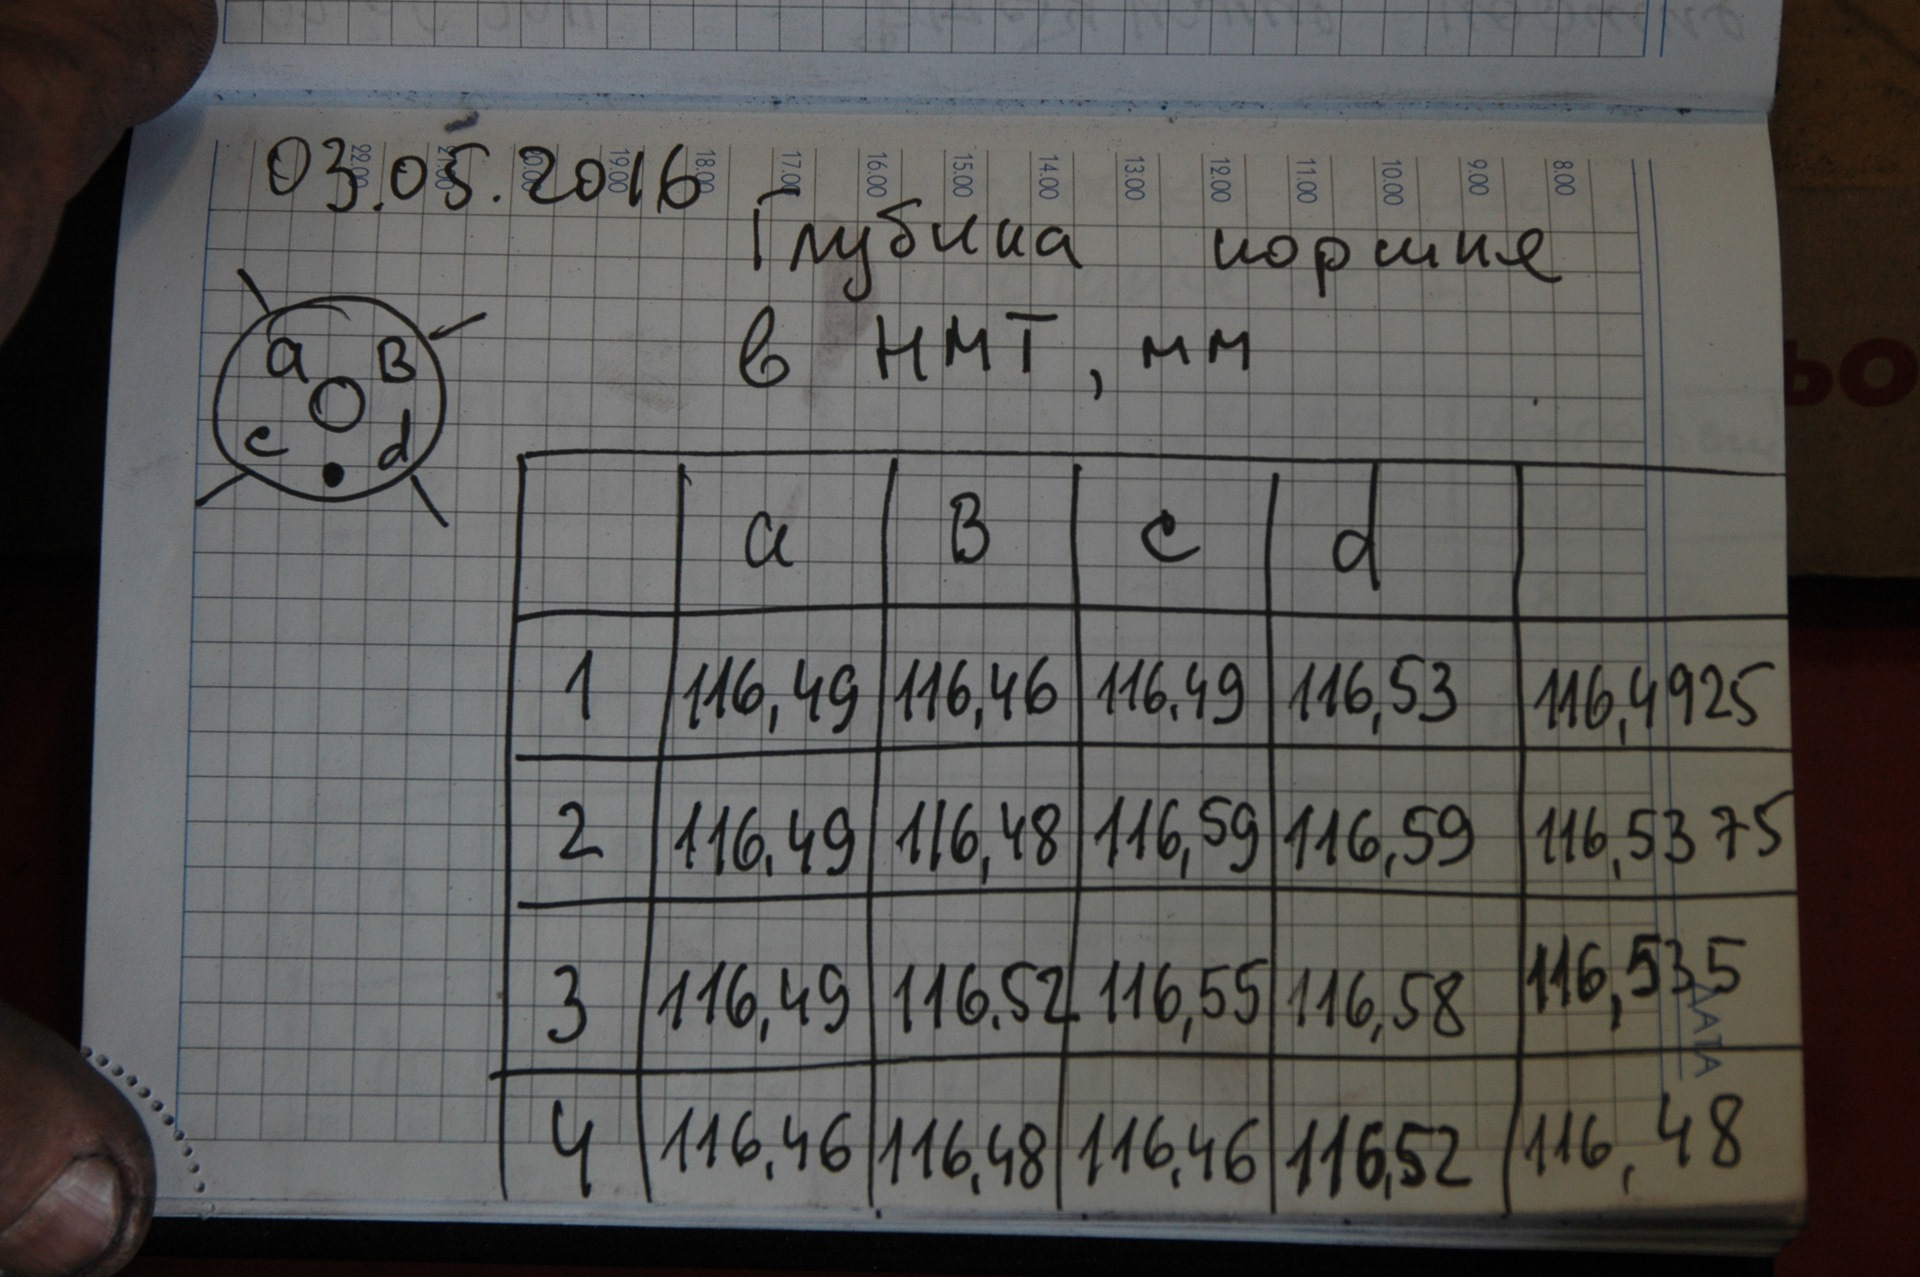 22.00 21.00 20.00 19.00 18.00 17.00 16.00 15.00 14.00 13.00 12.00 11.00 10.00 9.00 8.00
03.05.2016
Глубина поршня
в НМТ, мм
a B
c d
a B c d
1 116,49 116,46 116,49 116,53 116,4925
2 116,49 116,48 116,59 116,59 116,5375
3 116,49 116,52 116,55 116,58 116,535
4 116,46 116,48 116,46 116,52 116,48
ДАТА